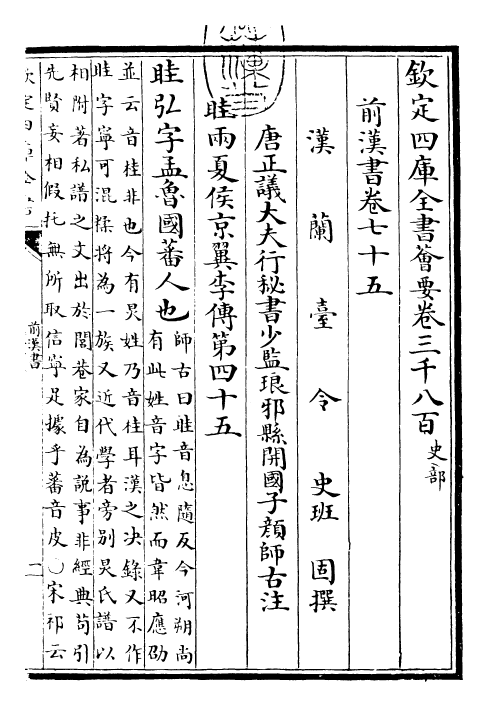 欽定四庫全書薈要卷三千八百 史部
前漢書卷七十五
漢蘭臺令史班固撰
唐正議大夫行秘書少監琅邪縣開國子顏師古注
眭兩夏侯京翼李傳第四十五
眭弘字孟魯國蕃人也
師古曰眭音息隨反今河朔尚
有此姓音字皆然而韋昭應劭
並云音桂非也今有炅姓乃音桂耳漢之決錄又不作
眭字寧可混糅將為一族又近代學者旁別炅氏譜以
相附著私譜之文出於閭巷家自為說事非經典苟引
先賢妄相假托無所取信寧足據乎蕃音皮○宋祁云
前漢書